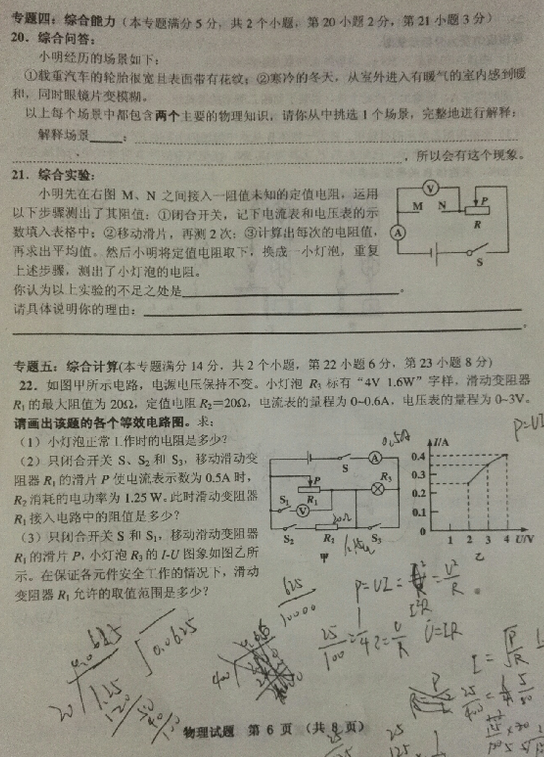 专题四：综合能力（本专题满分5分，共2个小题，第20小题2分，第21小题3分）
20．综合问答：
小明经历的场景如下：
①载重汽车的轮胎很宽且表面带有花纹；②寒冷的冬天，从室外进入有暖气的室内感到暖
和，同时眼镜片变模糊。
以上每个场景中都包含两个主要的物理知识，请你从中挑选1个场景，完整地进行解释：
解释场景____：
，所以会有这个现象。
21．综合实验：
小明先在右图 M、N 之间接入一阻值未知的定值电阻，运用
以下步骤测出了其阻值：①闭合开关，记下电流表和电压表的示
数填入表格中；②移动滑片，再测2次；③计算出每次的电阻值，
再求出平均值。然后小明将定值电阻取下，换成一小灯泡，重复
上述步骤，测出了小灯泡的电阻。
你认为以上实验的不足之处是____。
请具体说明你的理由：____
____。
V
M N P
R
A
S
专题五：综合计算(本专题满分14分，共2个小题，第22小题6分，第23小题8分)
22．如图甲所示电路，电源电压保持不变。小灯泡 R₃ 标有“4V 1.6W”字样，滑动变阻器
R₁ 的最大阻值为20Ω，定值电阻 R₂=20Ω，电流表的量程为0~0.6A，电压表的量程为0~3V。
请画出该题的各个等效电路图。求：
P=UI
（1）小灯泡正常工作时的电阻是多少？
（2）只闭合开关 S、S₂ 和 S₃，移动滑动变
阻器 R₁ 的滑片 P 使电流表示数为0.5A时，
R₂ 消耗的电功率为1.25 W。此时滑动变阻器
R₁ 接入电路中的阻值是多少？
（3）只闭合开关 S 和 S₁，移动滑动变阻器
R₁ 的滑片 P，小灯泡 R₃ 的 I-U 图象如图乙所
示。在保证各元件安全工作的情况下，滑动
变阻器 R₁ 允许的取值范围是多少？
0.5A
S A
P R₃
S₁ R₁
V
20Ω
S₂ R₂ S₃
甲
1.25W
I/A
0.4
0.3
0.2
0.1
0 1 2 3 4 U/V
乙
625
10000
P=UI=
U²
R
I²R
25
100
U=IR
0.0625
物理试题 第6页 （共8页）